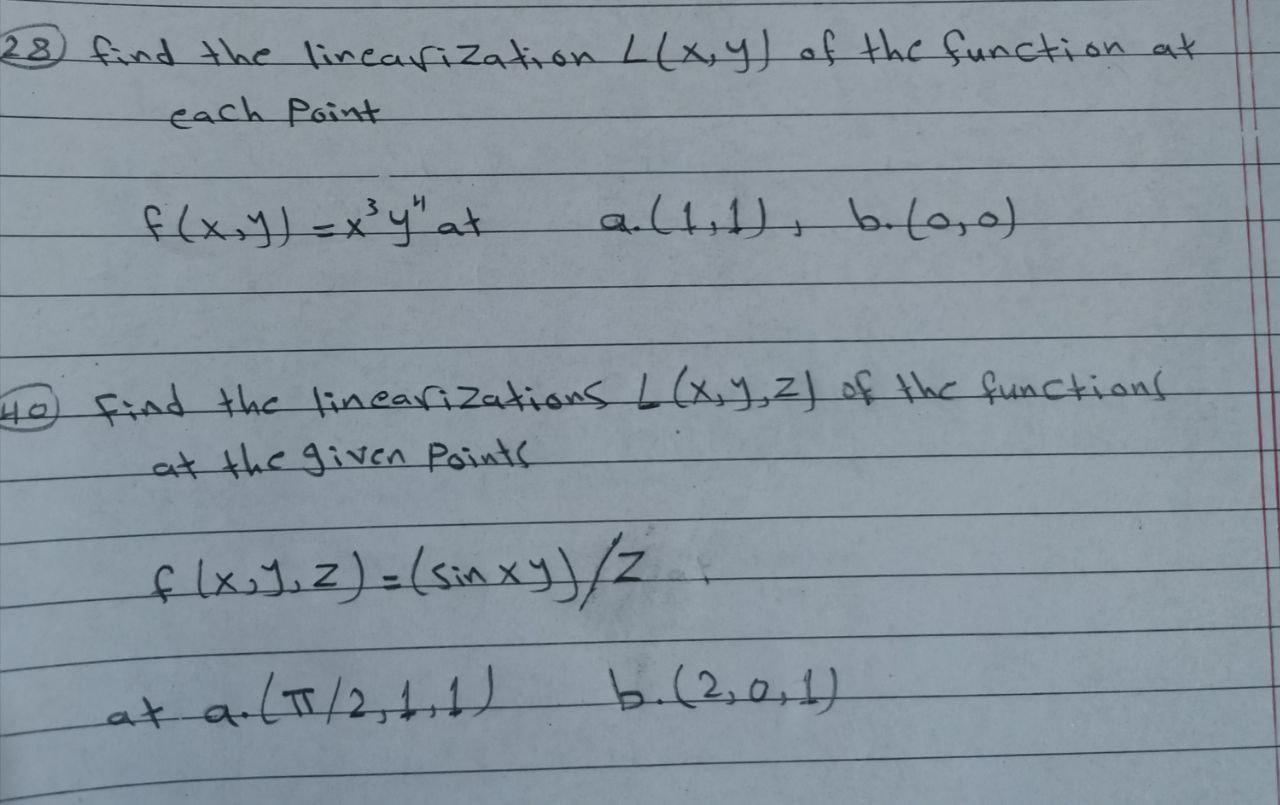 28 find the linearization L(x,y) of the function at
each Point
f(x,y) = x³y⁴ at a.(1,1), b.(0,0)
40 Find the linearizations L(x,y,z) of the functions
at the given Points
f(x,y,z) = (sin xy)/z
at a.(π/2,1,1) b.(2,0,1)